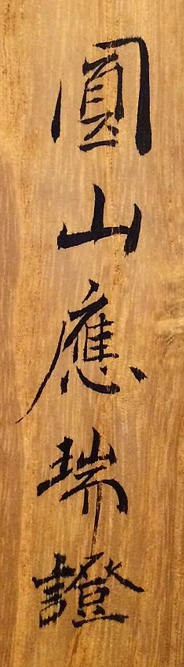 圓山應瑞證